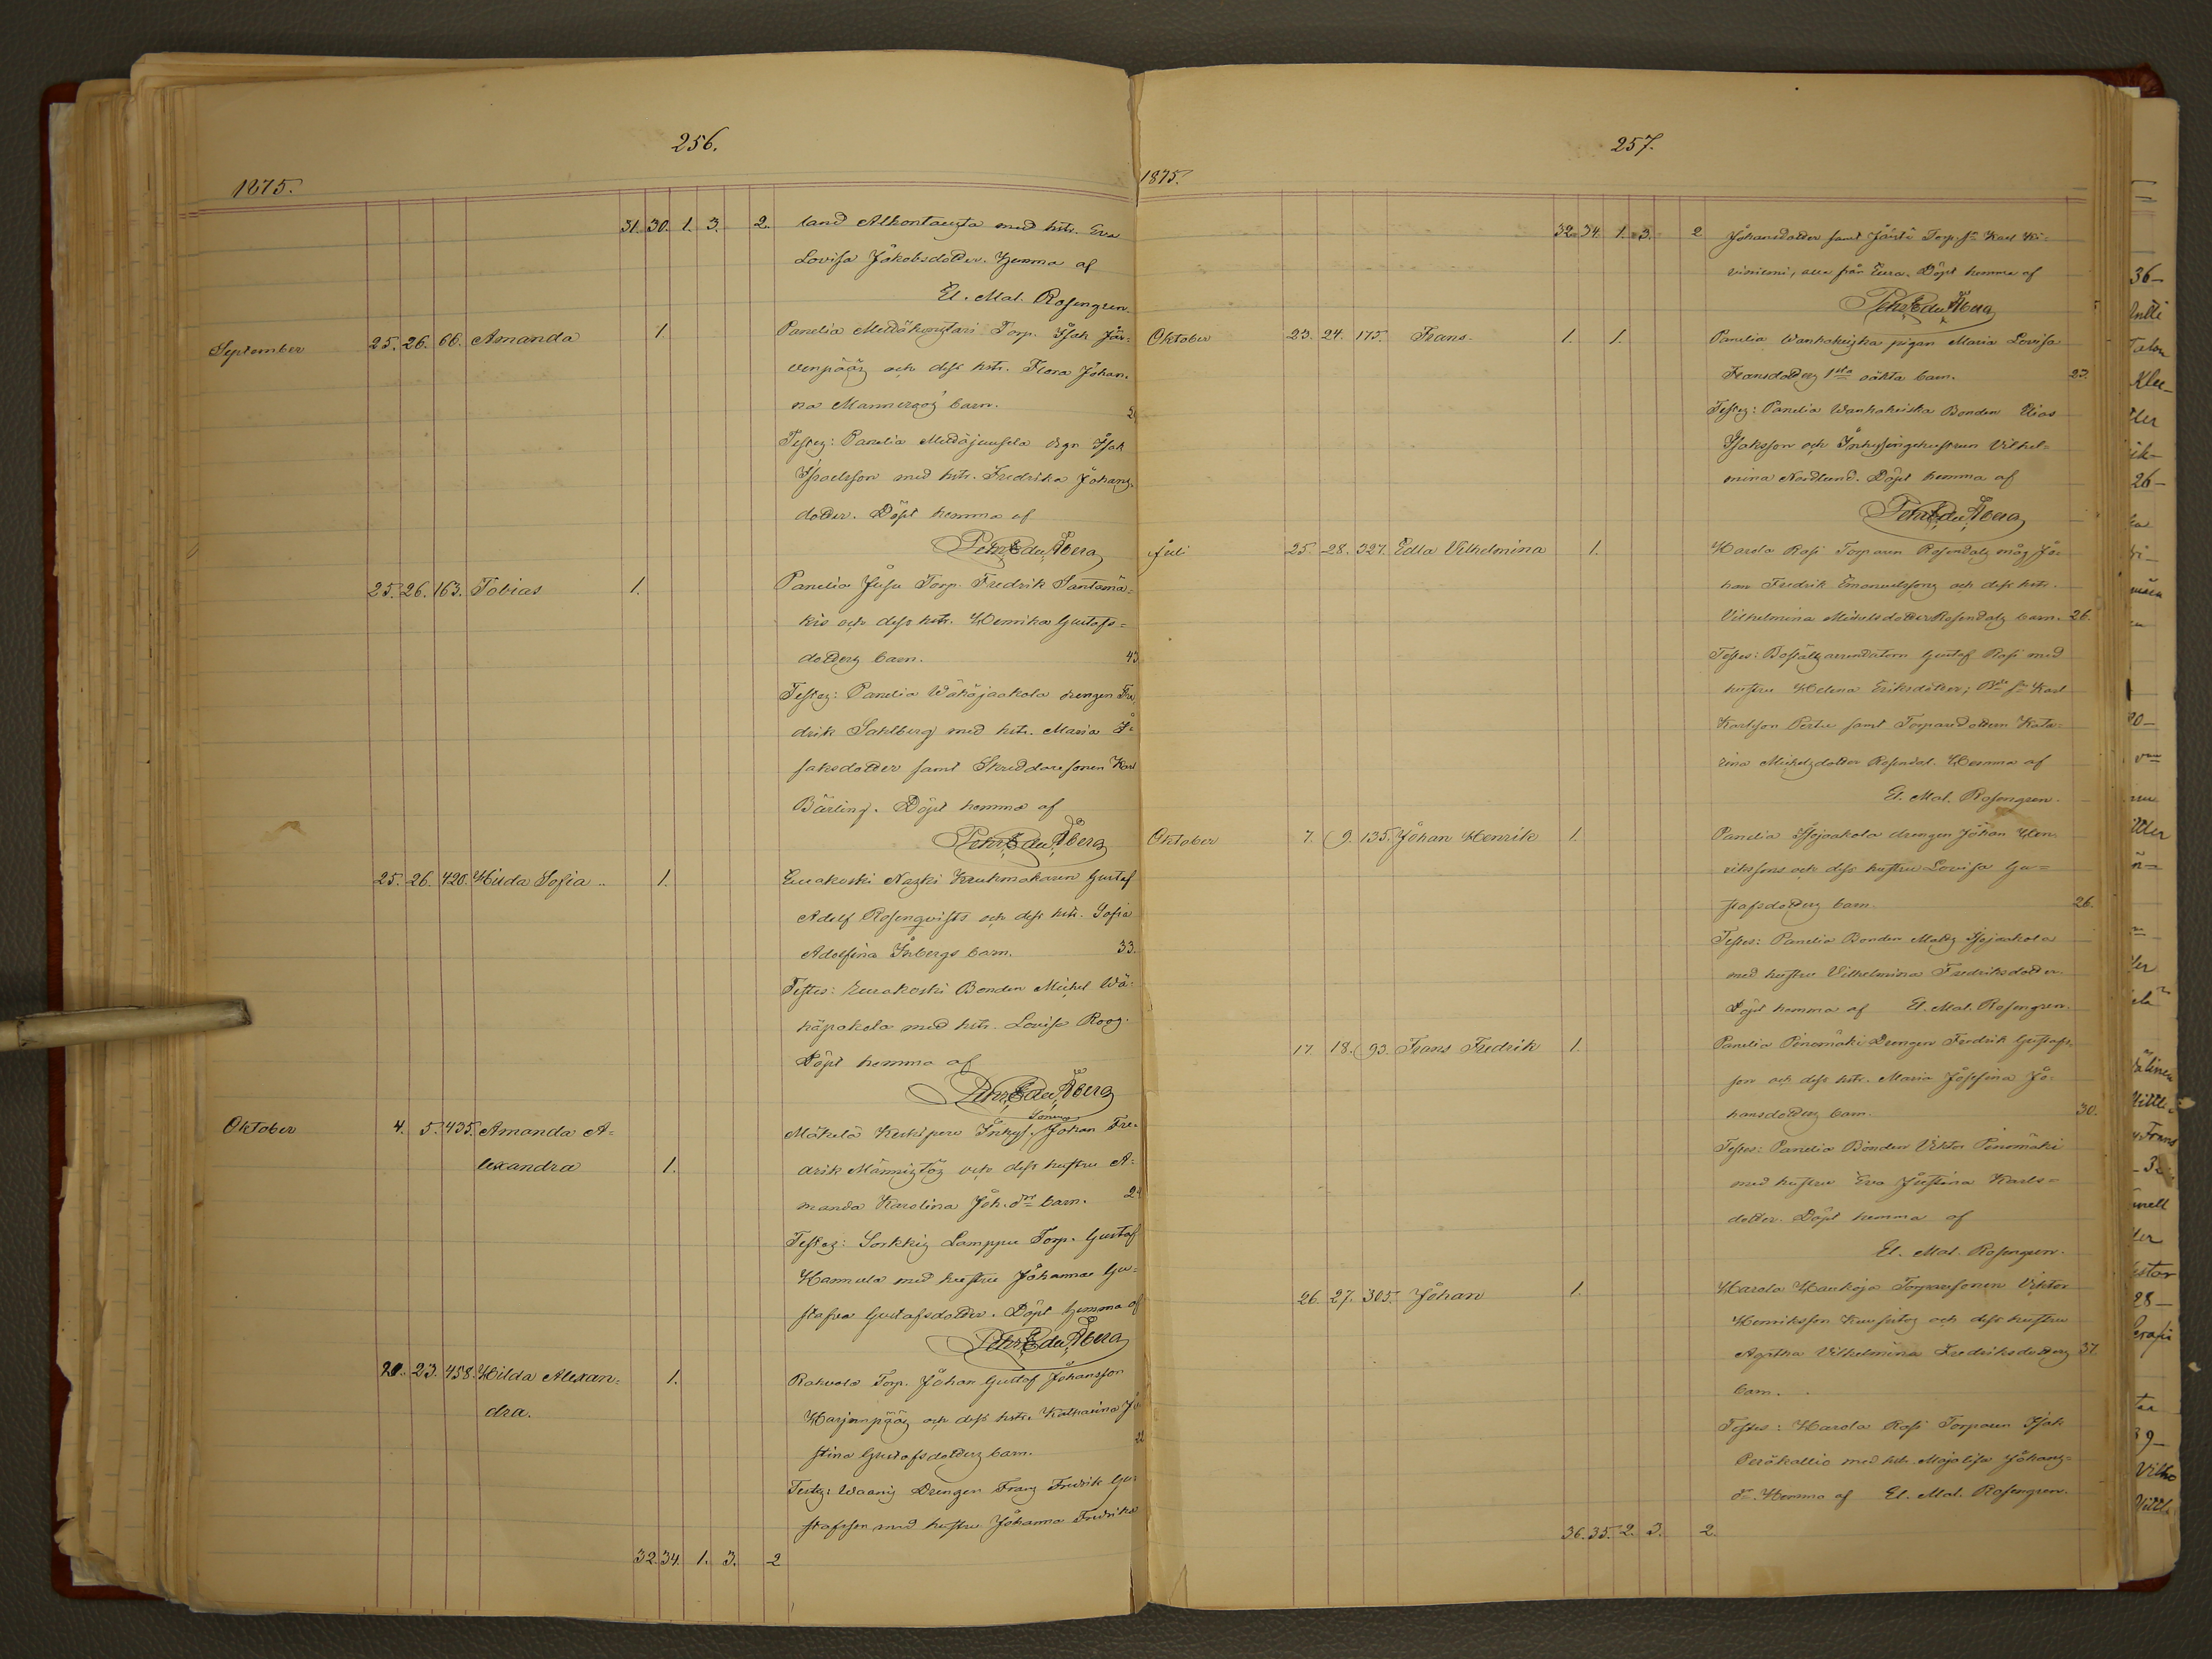 256.
1875.
31. 30. 1. 3. 2. land Alkontaugta med hstr. Eva
Lovisa Jakobsdotter. Hemma af
El. Mat. Rosengren.
September 25. 26. 66. Amanda 1. Panelia Torp. Isak Jär-
venpääs och dess hstr. Flora Johan-
na barn.
Testes: Panelia drgn Isak
Israelsson med hstr. Fredrika Johans-
dotter. Döpt hemma af
Pehr Edv. Åberg
25. 26. 163. Tobias 1. Panelia Juju Torp. Fredrik Santamä-
kis och dess hstr. Henrika Gustafs-
dotters barn. 43
Testes: Panelia Wähäjaakola drengen Fre-
drik Sahlberg med hstr. Maria I-
saksdotter samt Skreddaresonen Karl
Bärling. Döpt hemma af
Pehr Edv. Åberg
25. 26. 420. Hilda Sofia 1. Eurakoski Naski Krukmakaren Gustaf
Adolf Rosenqvists och dess hstr. Sofia
Adolfina Inbergs barn. 33.
Testes: Eurakoski Bonden Michel Wä-
häpakola med hstr. Lovisa Roos.
Döpt hemma af
Pehr Edv. Åberg
Sonens
Oktober 4. 5. 435. Amanda A- Mäkelä Keskipere Inhys. Johan Fre-
lexandra 1. drik Männistös och dess hustru A-
manda Karolina Joh. dr barn. 24
Testes: Sorkkis Lamppu Torp. Gustaf
Hannula med hustru Johanna Gu-
stafva Gustafsdotter. Döpt hemma af
Pehr Edv. Åberg
22. 23. 458. Hilda Alexan- 1. Rahvola Torp. Johan Gustaf Johansson
dra. Harjunpääs och dess hstr. Katharina Ju-
stina Gustafsdotters barn. 22
Testes: Waanis Drengen Frans Fredrik Gu-
stafsson med hustru Johanna Fredrika
32. 34. 1. 3. 2
257.
1875.
32. 34. 1. 3. 2 Johansdotter samt Torp. sn Karl Ki-
viniemi, alla från Eura. Döpt hemma af
Pehr Edv. Åberg
Oktober 23. 24. 175. Frans. 1. 1. Panelia Wanhakiska pigan Maria Lovisa
Fransdotters 1sta oäkta barn. 23.
Testes: Panelia Wanhakiska Bonden Elias
Isaksson och Inhysingehustrun Vilhel-
mina Nordlund. Döpt hemma af
Pehr Edv. Åberg
Juli 25. 28. 327. Edla Vilhelmina 1. Harola Rasi Torparen Rosendals måg Jo-
han Fredrik Emanuelssons och dess hstr.
Vilhelmina Michelsdotter Rosendals barn. 26.
Testes: Boställsarrendatorn Gustaf Rasi med
hustru Helena Eriksdotter; Bde sn Karl
Karlsson Perttu samt Torparedottern Kata-
rina Michelsdotter Rosendal. Hemma af
El. Mat. Rosengren.
Oktober 7. 9. 135. Johan Henrik 1. Panelia Isojaakola drengen Johan Hen-
rikssons och dess hustru Lovisa Gu-
stafsdotters barn. 26.
Testes: Panelia Bonden Matts Isojaakola
med hustru Vilhelmina Fredriksdotter.
Döpt hemma af El. Mat. Rosengren.
17. 18. 93. Frans Fredrik 1. Panelia Pinomäki Drengen Fredrik Gustafs-
son och dess hstr. Maria Josefina Jo-
hansdotters barn. 30.
Testes: Panelia Bonden Viktor Pinomäki
med hustru Eva Justina Karls-
dotter. Döpt hemma af
El. Mat. Rosengren.
26. 27. 305. Johan 1. Harola Hankoja Torparesonen Viktor
Henriksson och dess hustru
Agatha Vilhelmina Fredriksdotters 37.
barn.
Testes: Harola Rasi Torparen Isak
Peräkallio med hstr. Majalisa Johans-
dr. Hemma af El. Mat. Rosengren.
36. 35. 2. 3. 2.